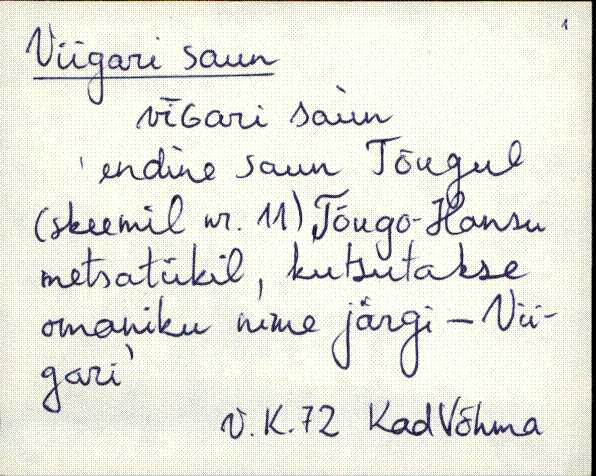 1
Viigari saun
vīGari saùn
'endine saun Tõugul
(skeemil nr. 11) Tõugo-Hansu
metsatükil, kutsutakse
omaniku nime järgi – Vii-
gari'
V.K.72 Kad Võhma